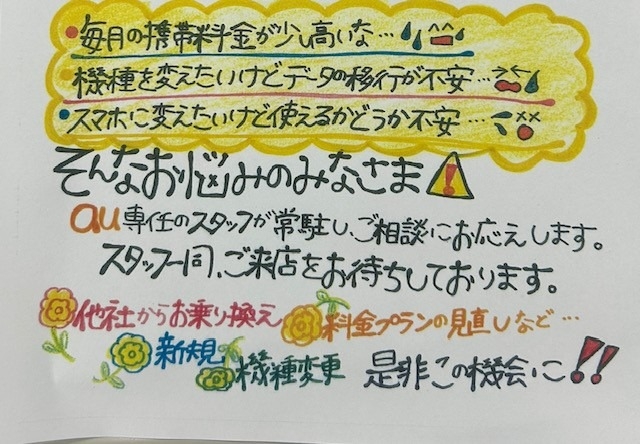 ・毎月の携帯料金が少し高いな…
・機種を変えたいけどデータの移行が不安…
・スマホに変えたいけど使えるかどうか不安…
そんなお悩みのみなさま
au専任のスタッフが常駐し、ご相談にお応えします。
スタッフ一同、ご来店をお待ちしております。
他社からお乗り換え 料金プランの見直しなど…
新規 機種変更 是非この機会に!!